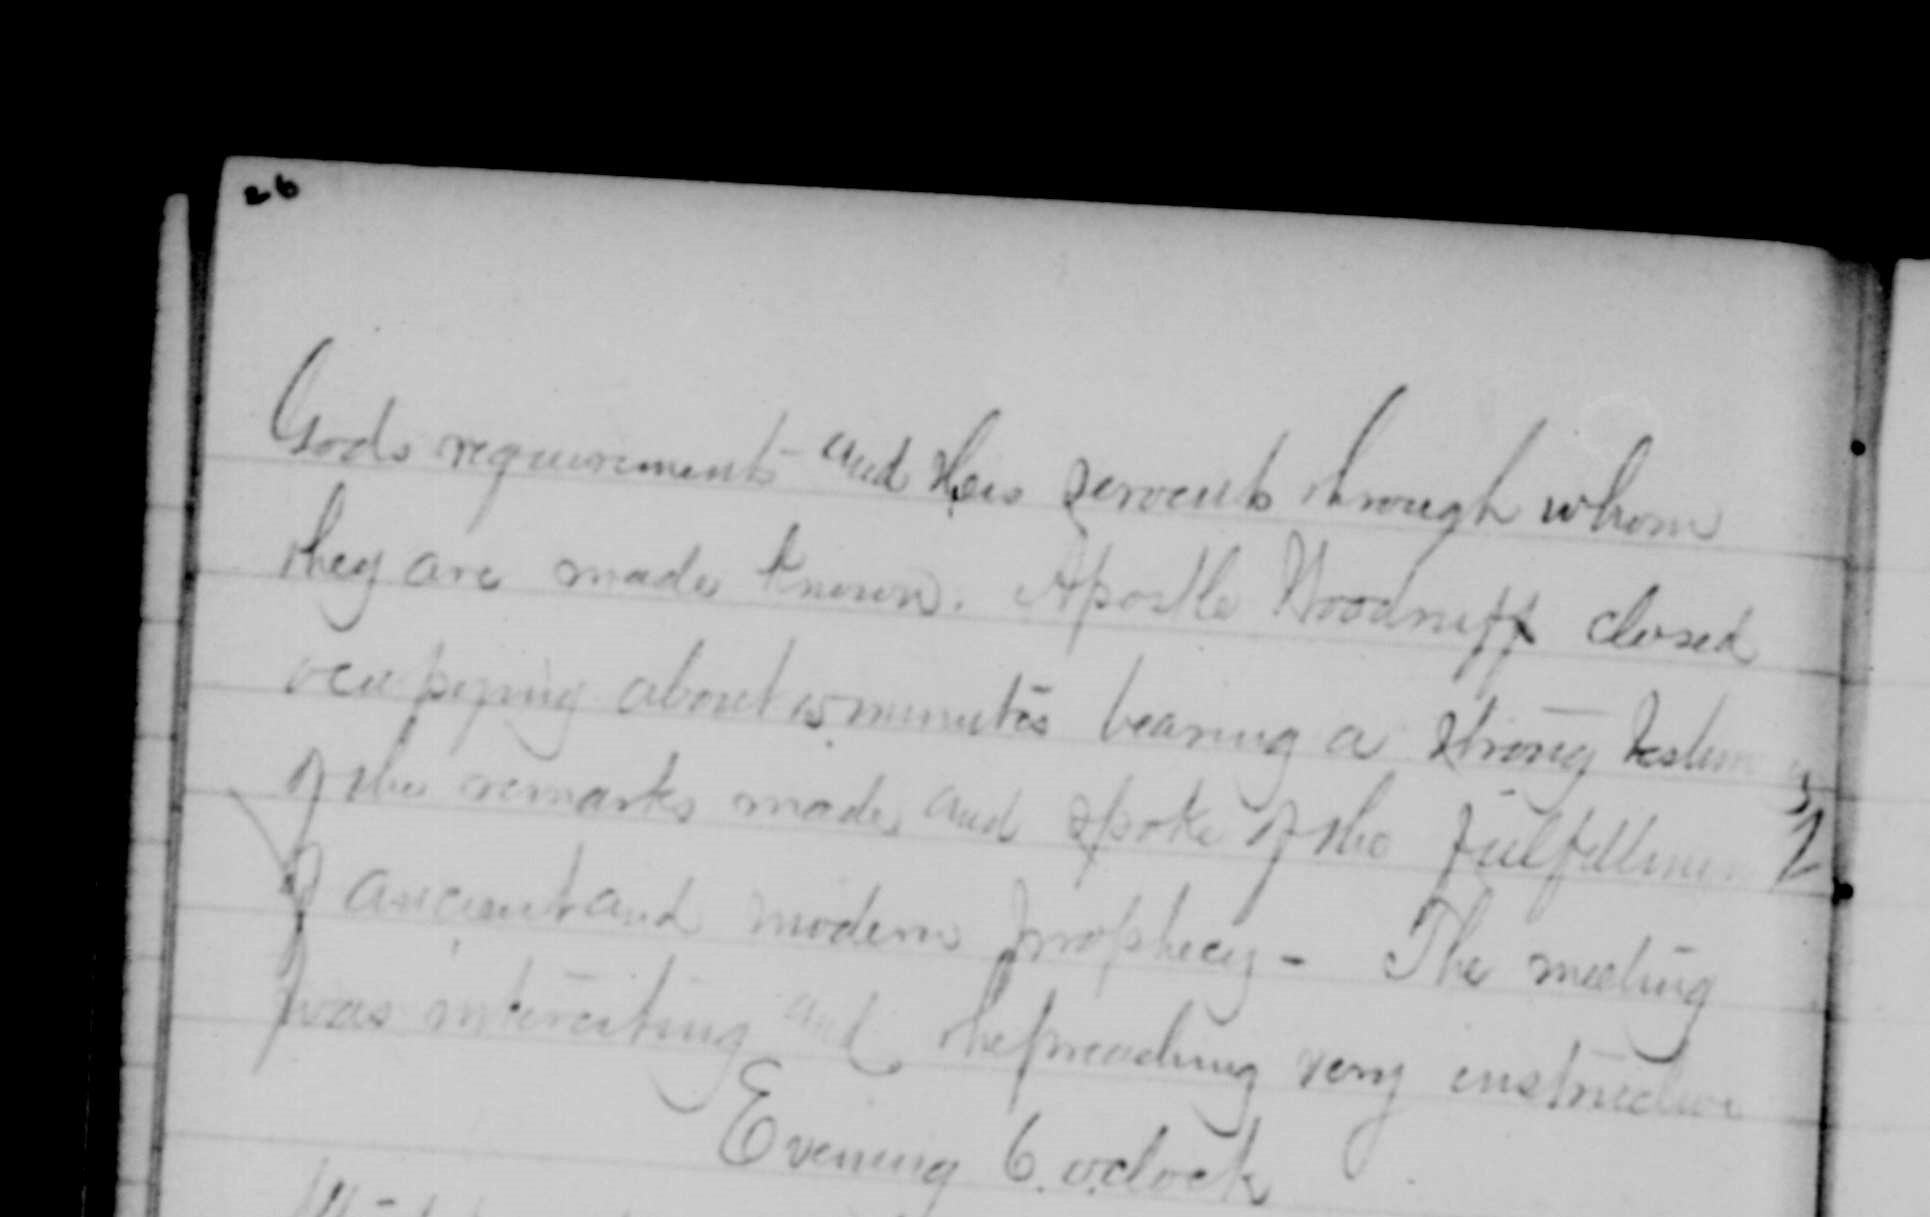 26
Gods requirements and His servents through whom
they are made known. Apostle Woodruff closed
occupying about 15 minutes bearing a strong testimony
of the remarks made, and spoke of the fulfillment
of ancient and modern prophecy - The meeting
was interesting and the preaching very instructive
Evening 6. o.clock